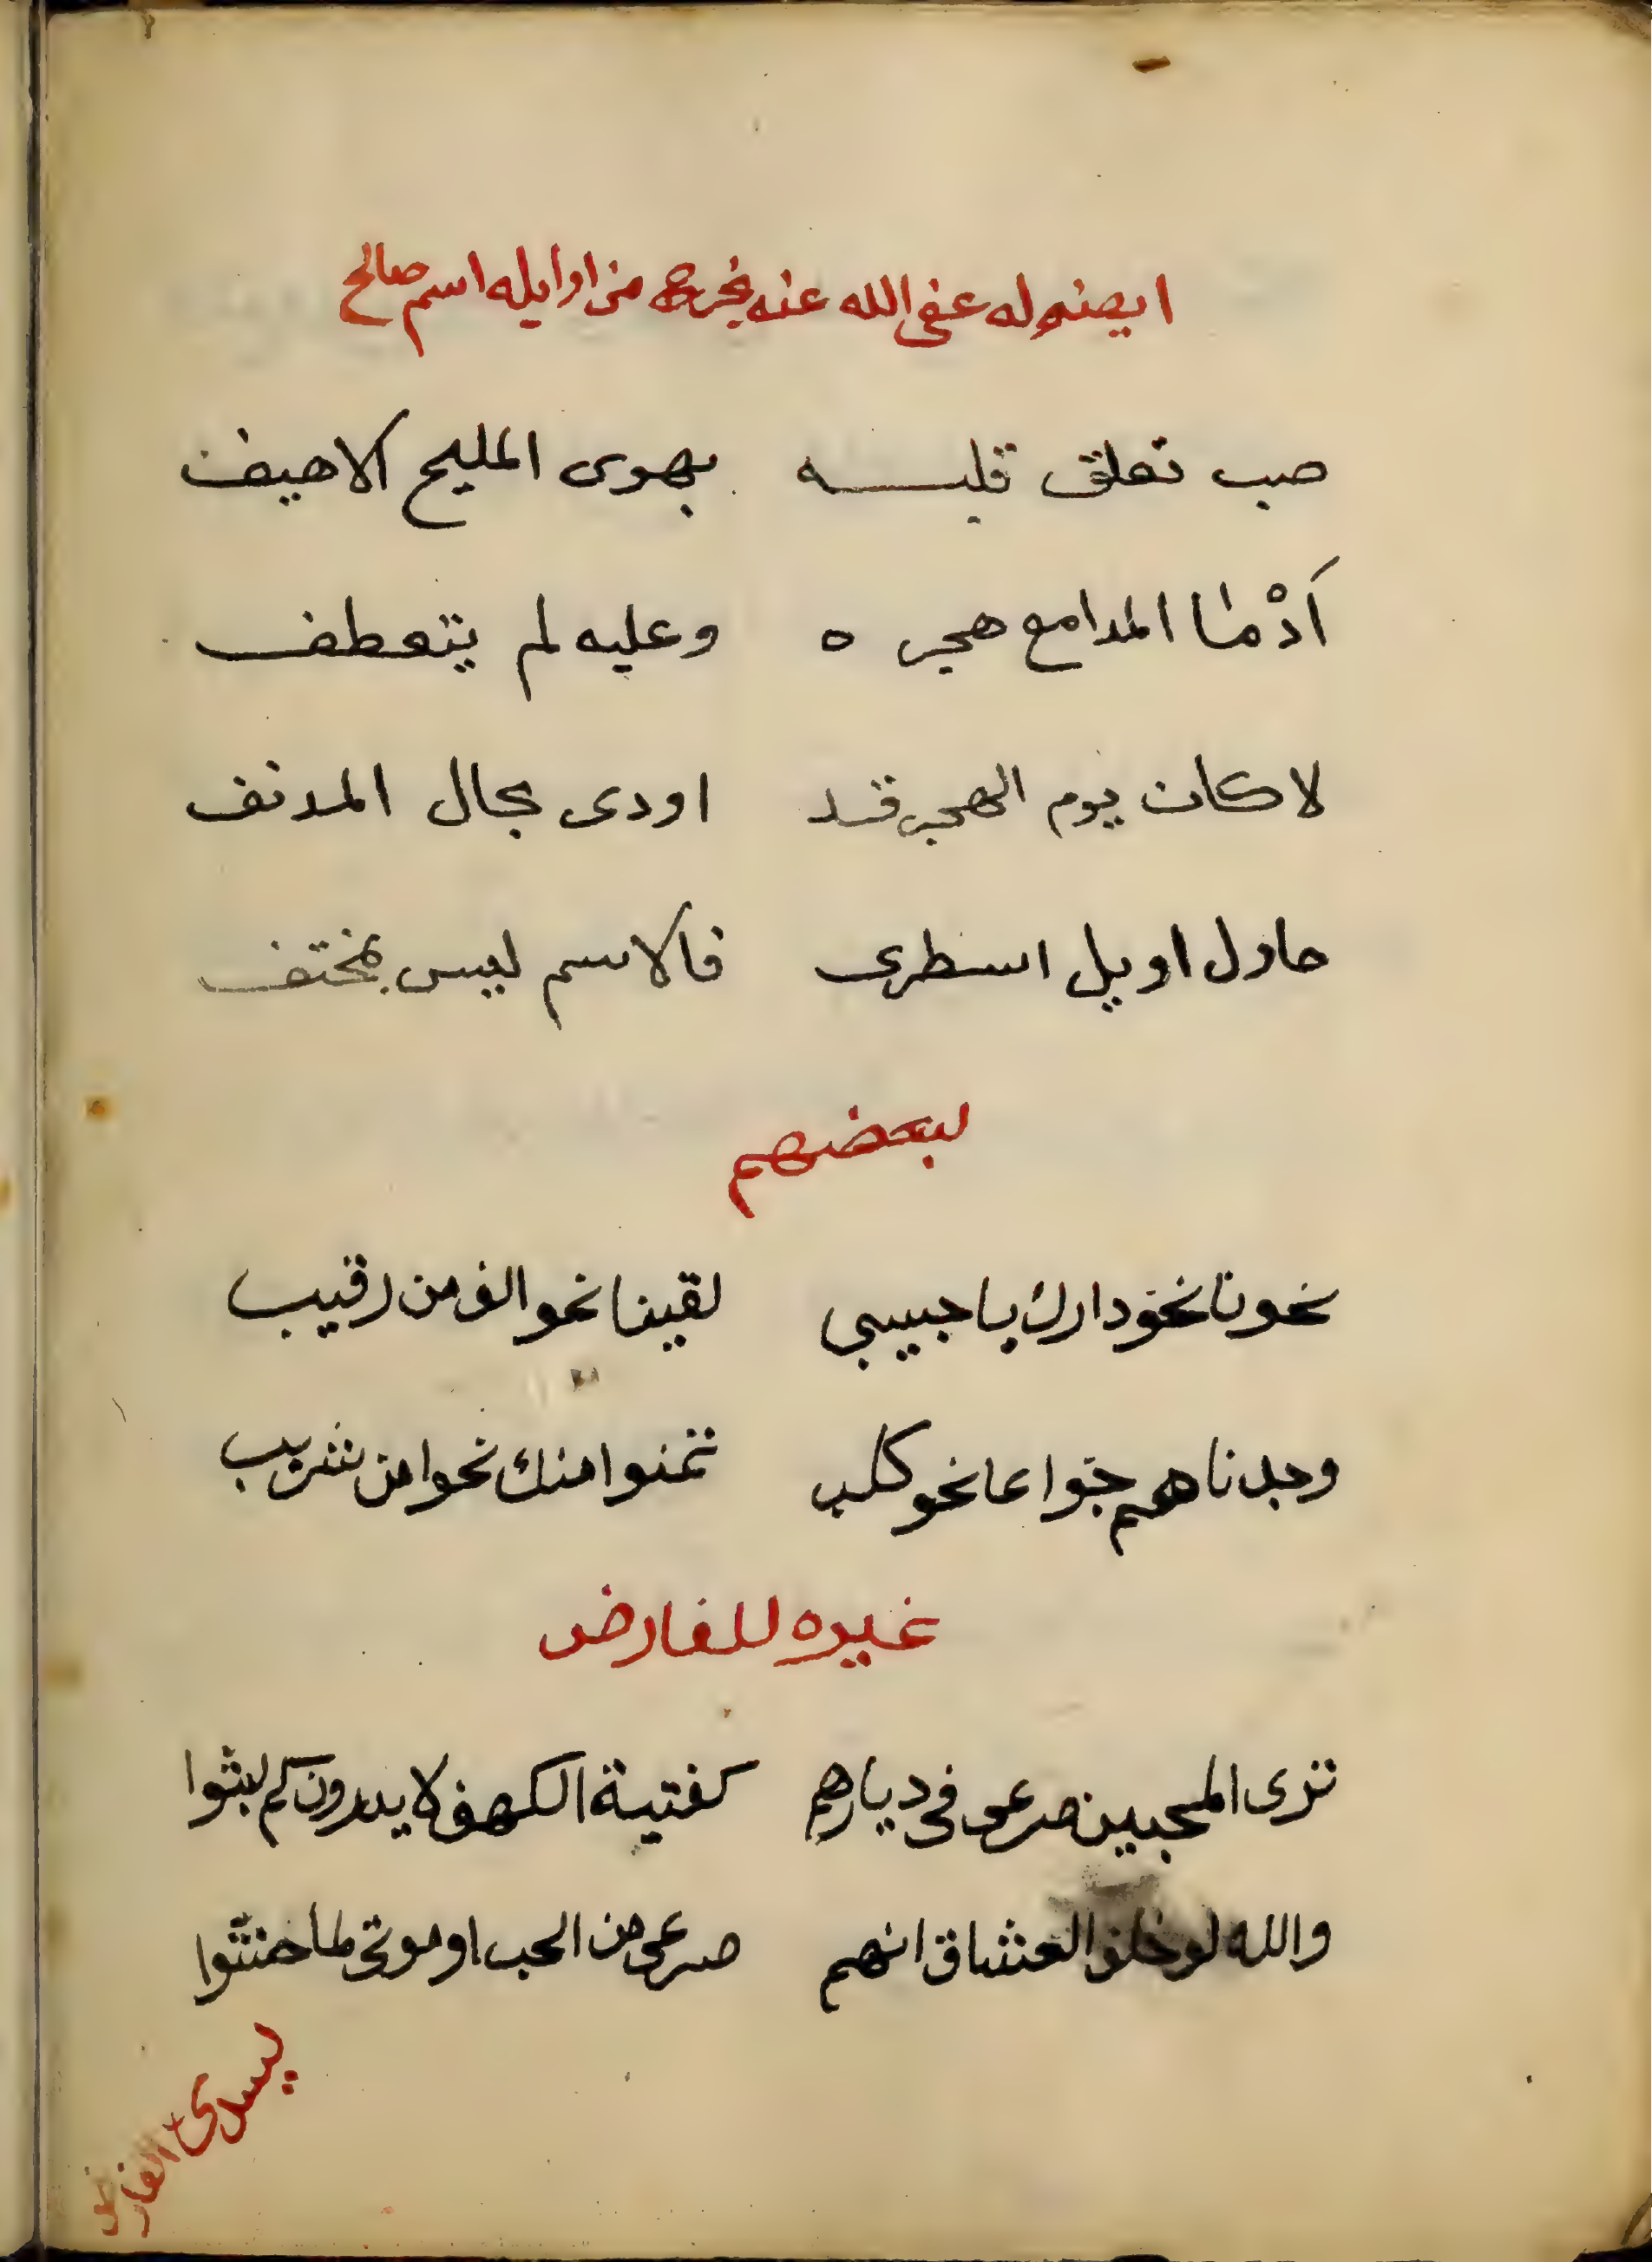 ايضا وله عفى الله عنه يخرج من اوايله اسم صالح
صب تعلق قلبه بهوى المليح الاهيف
اَدْما المدامع هجره وعليه لم يتعطف
لا كان يوم الهجر قد اودى بحال المدنف
حاول اويل اسطرى فالاسم ليس بمختف
لبعضهم
نحونا نحو دارك يا حبيبي لقينا نحو الف من رقيب
وجدناهم جواعا نحو كلب تمنوا منك نحوا من شريب
غيره للفارض
ترى المحبين صرعى فى ديارهم كفتية الكهف لا يدرون كم لبثوا
والله لو حلف العشاق انهم صرعى من الحب او موتى لما حنثوا
لسيدى الفارض